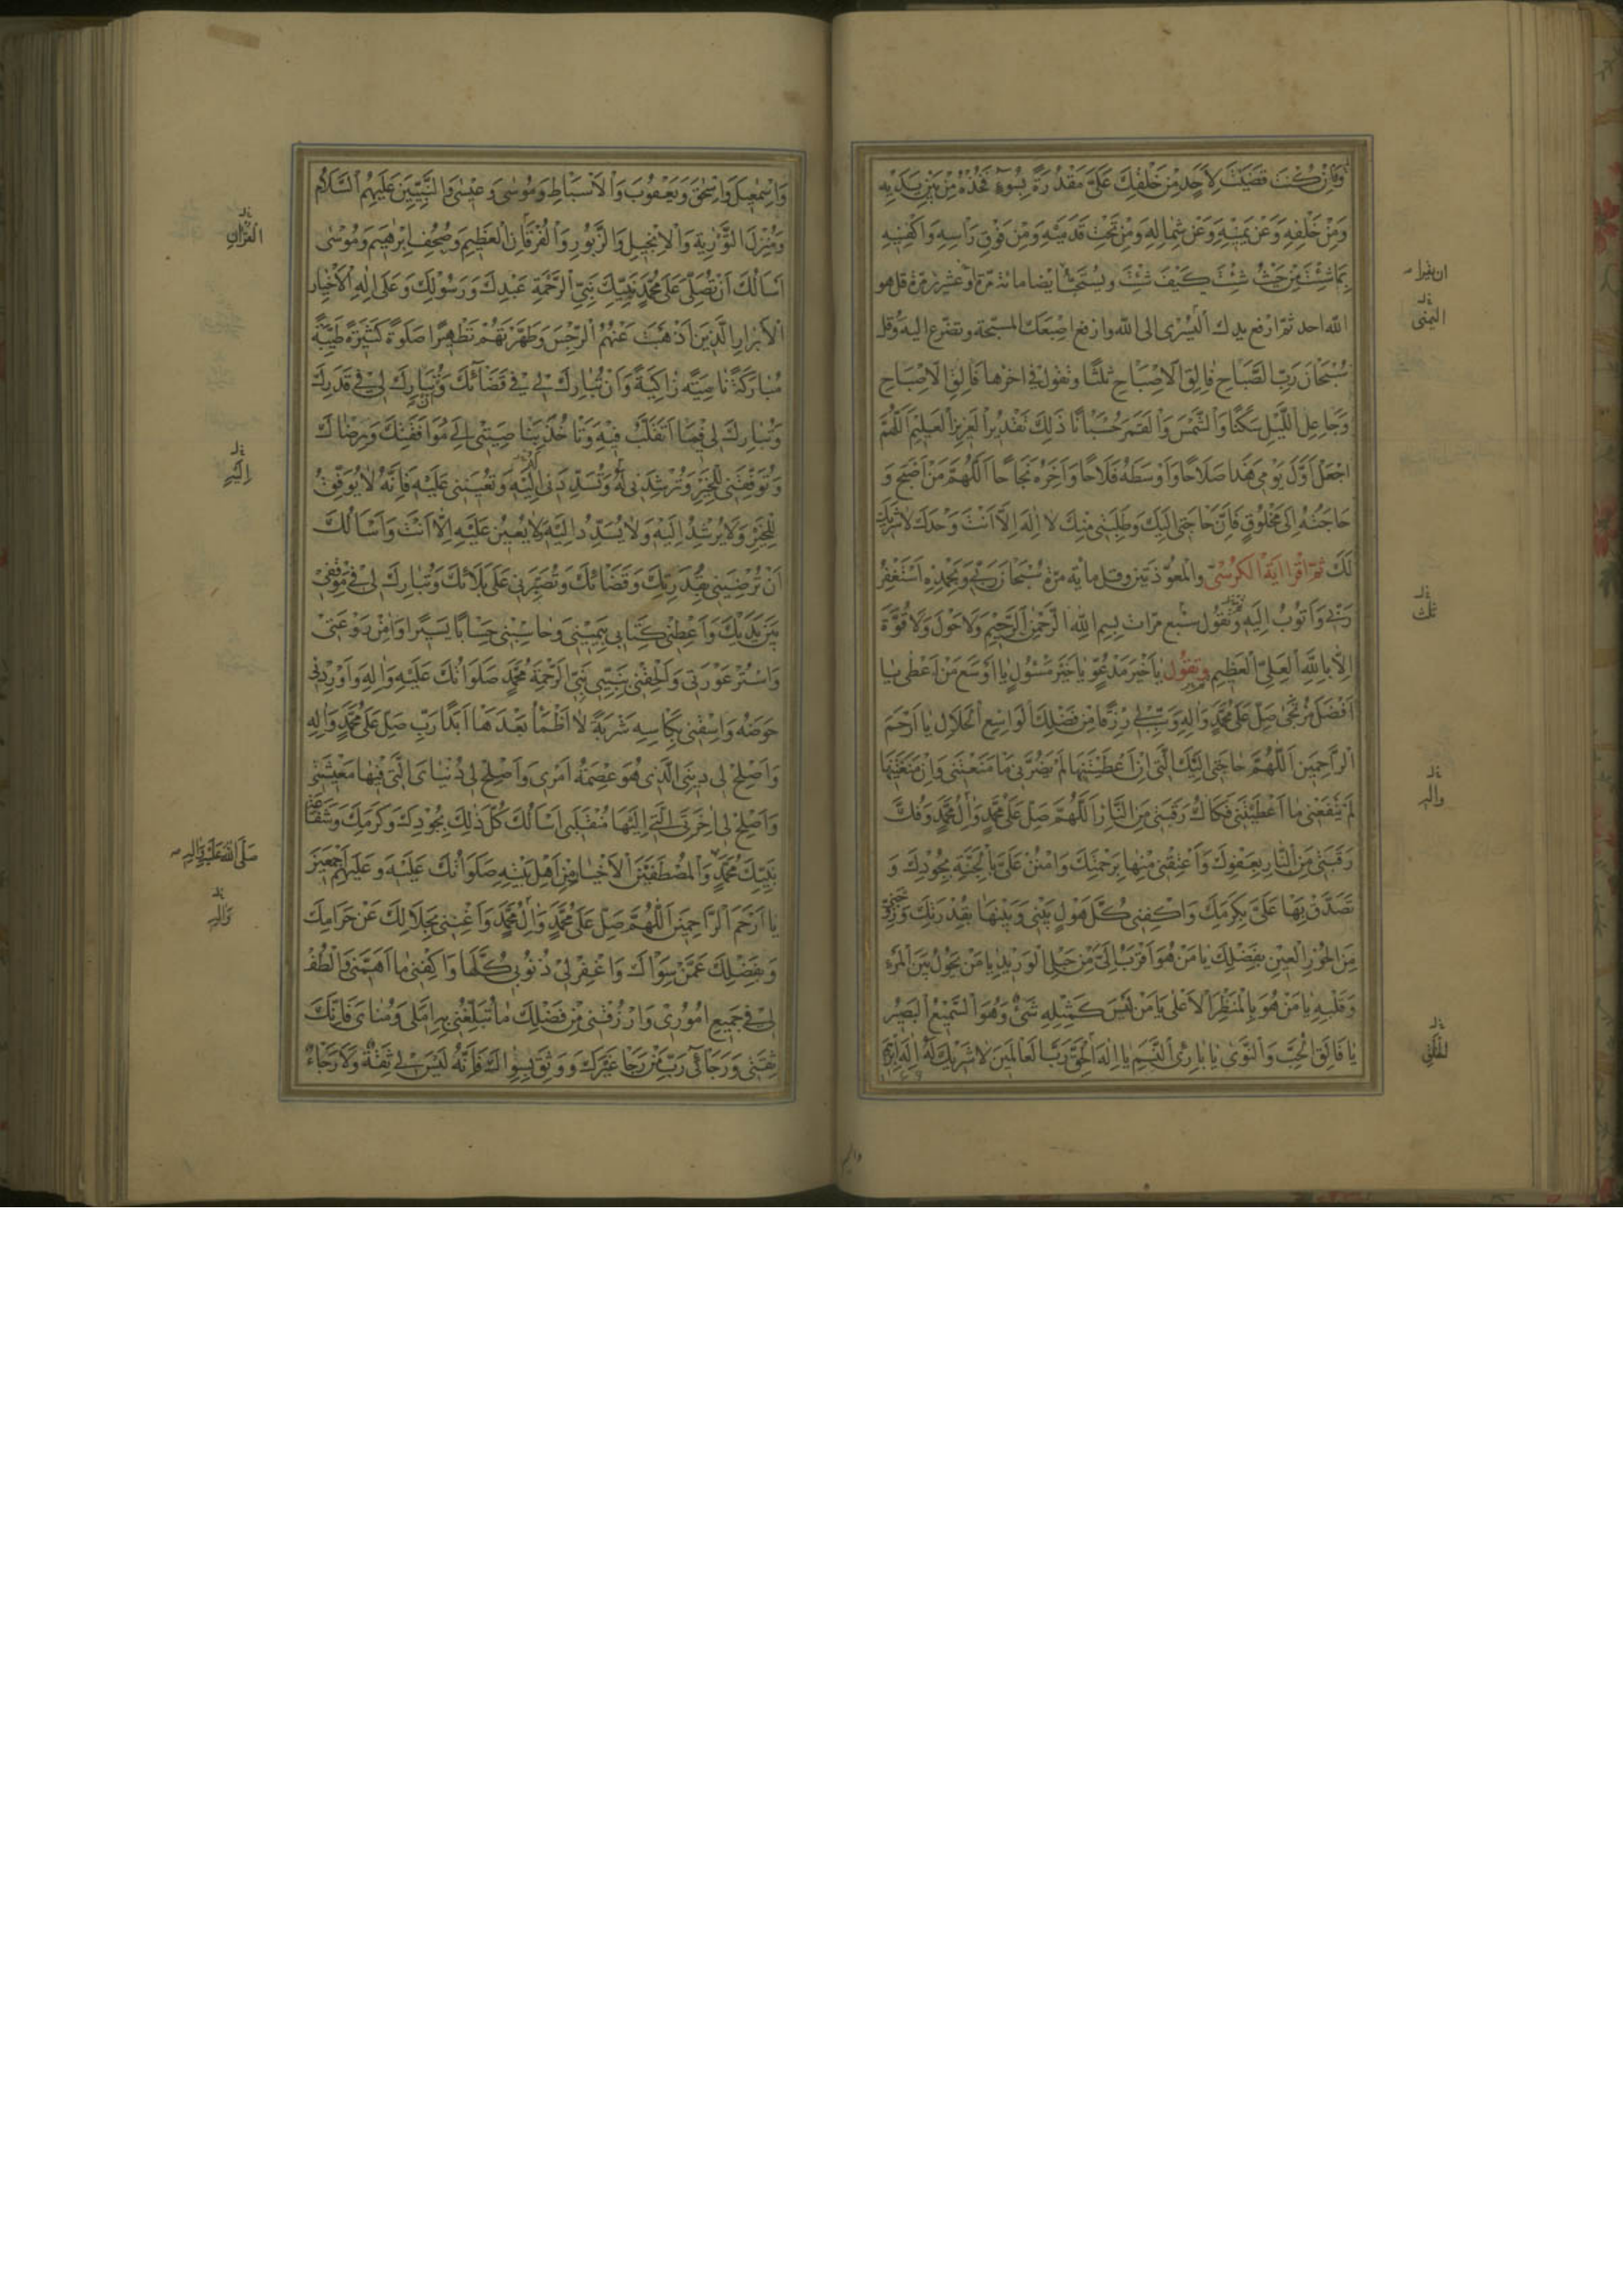 وَاِنْ كُنْتَ قَضَيْتَ لِاَحَدٍ مِنْ خَلْقِكَ عَلَىَّ مَقْدُرَةً بِسُوءٍ فَخُذْهُ مِنْ بَيْنِ يَدَيْهِ
وَمِنْ خَلْفِهِ وَعَنْ يَمينِهِ وَعَنْ شِمالِهِ وَمِنْ تَحْتِ قَدَمَيْهِ وَمِنْ فَوْقِ رَاْسِهِ وَاكْفِنيهِ
بِمَا شِئْتَ مِنْ حَيْثُ شِئْتَ كَيْفَ شِئْتَ ويستحبّ ايضا مائة مرّة او عشرين مرّة قل هو
ان يقرا
الله احد ثمّ ارفع يدك اليسرى الى الله وارفع اصبعك المسبّحة وتضرّع اليه وقل
اليمنى
سُبْحَانَ رَبِّ الصَّبَاحِ فَالِقِ الْاِصْبَاحِ ثَلثًا وتقول فى اخرها فَالِقِ الْاِصْبَاحِ
وَجَاعِلِ اللَّيْلِ سَكَنًا وَالشَّمْسَ وَالْقَمَرَ حُسْبَانًا ذَلِكَ تَقْديرُ الْعَزيزِ الْعَليمِ اَللّهُمَّ
اجْعَلْ اَوَّلَ يَوْمِي هَذَا صَلَاحًا وَاَوْسَطَهُ فَلَاحًا وَآخِرَهُ نَجَاحًا اَللّهُمَّ مَنْ اَصْبَحَ وَ
حَاجَتُهُ اِلَى مَخْلُوقٍ فَاِنَّ حَاجَتِي اِلَيْكَ وَطَلِبَتِي مِنْكَ لَا اِلَهَ اِلَّا اَنْتَ وَحْدَكَ لَا شَرِيكَ
لَكَ ثمّ اقرا اية الكرسىّ والمعوّذتين وقل مأية مرّة سُبْحَانَ رَبِّي وَبِحَمْدِهِ اَسْتَغْفِرُ
رَبِّي وَاَتُوبُ اِلَيْهِ وَتَقُولُ سبع مرّات بِسْمِ اللهِ الرَّحْمَنِ الرَّحِيمِ وَلَا حَوْلَ وَلَا قُوَّةَ
اِلَّا بِاللهِ الْعَلِيِّ الْعَظِيمِ وتقول يَا خَيْرَ مَدْعُوٍّ يَا خَيْرَ مَسْئُولٍ يَا اَوْسَعَ مَنْ اَعْطَى يَا
اَفْضَلَ مُرْتَجًى صَلِّ عَلَى مُحَمَّدٍ وَالِهِ وَسَبِّبْ لِي رِزْقًا مِنْ فَضْلِكَ الْوَاسِعِ الْحَلَالِ يَا اَرْحَمَ
الرَّاحِمِينَ اَللّهُمَّ حَاجَتِي اِلَيْكَ الَّتِي اِنْ اَعْطَيْتَنِيهَا لَمْ يَضُرَّنِي مَا مَنَعْتَنِي وَاِنْ مَنَعْتَنِيهَا
لَمْ يَنْفَعْنِي مَا اَعْطَيْتَنِي فَكَاكُ رَقَبَتِي مِنَ النَّارِ اَللّهُمَّ صَلِّ عَلَى مُحَمَّدٍ وَالِ مُحَمَّدٍ وَفُكَّ
والهِ
رَقَبَتِي مِنَ النَّارِ بِعَفْوِكَ وَاَعْتِقْنِي مِنْهَا بِرَحْمَتِكَ وَامْنُنْ عَلَيَّ بِالْجَنَّةِ بِجُودِكَ وَ
تَصَدَّقْ بِهَا عَلَيَّ بِكَرَمِكَ وَاكْفِنِي كُلَّ هَوْلٍ بَيْنِي وَبَيْنَهَا بِقُدْرَتِكَ وَزَوِّجْنِي
مِنَ الْحُورِ الْعِينِ بِفَضْلِكَ يَا مَنْ هُوَ اَقْرَبُ اِلَيَّ مِنْ حَبْلِ الْوَرِيدِ يَا مَنْ يَحُولُ بَيْنَ الْمَرْءِ
وَقَلْبِهِ يَا مَنْ هُوَ بِالْمَنْظَرِ الْاَعْلَى يَا مَنْ لَيْسَ كَمِثْلِهِ شَيْءٌ وَهُوَ السَّمِيعُ الْبَصِيرُ
يَا فَالِقَ الْحَبِّ وَالنَّوَى يَا بَارِئَ النَّسَمِ يَا اِلَهَ الْحَقِّ رَبَّ الْعَالَمِينَ لَا شَرِيكَ لَهُ اِلَهَ اِبْرَهِيمَ
وَاِسْمَعِيلَ وَاِسْحَقَ وَيَعْقُوبَ وَالْاَسْبَاطِ وَمُوسَى وَعِيسَى وَالنَّبِيِّينَ عَلَيْهِمُ السَّلَامُ
وَمُنْزِلَ التَّوْرِيةِ وَالْاِنْجِيلِ وَالزَّبُورِ وَالْفُرْقَانِ الْعَظِيمِ وَصُحُفِ اِبْرَهِيمَ وَمُوسَى
القُرْآنِ
اَسْاَلُكَ اَنْ تُصَلِّيَ عَلَى مُحَمَّدٍ نَبِيِّكَ نَبِيِّ الرَّحْمَةِ عَبْدِكَ وَرَسُولِكَ وَعَلَى الِهِ الْاَخْيَارِ
الْاَبْرَارِ الَّذِينَ اَذْهَبْتَ عَنْهُمُ الرِّجْسَ وَطَهَّرْتَهُمْ تَطْهِيرًا صَلَوةً كَثِيرَةً طَيِّبَةً
مُبَارَكَةً نَامِيَةً زَاكِيَةً وَاَنْ تُبَارِكَ لِي فِي قَضَائِكَ وَتُبَارِكَ لِي فِي قَدَرِكَ
وَتُبَارِكَ لِي فِيمَا اَتَقَلَّبُ فِيهِ وَتَاْخُذَ بِنَاصِيَتِي اِلَى مُوَافَقَتِكَ وَمَرْضَاتِكَ
وَتُوَفِّقَنِي لِلْخَيْرِ وَتُرْشِدَنِي لَهُ وَتُسَدِّدَنِي اِلَيْهِ وَتُعِينَنِي عَلَيْهِ فَاِنَّهُ لَا يُوَفِّقُ
اِلَيْهِ
لِلْخَيْرِ وَلَا يُرْشِدُ اِلَيْهِ وَلَا يُسَدِّدُ اِلَيْهِ وَلَا يُعِينُ عَلَيْهِ اِلَّا اَنْتَ وَاَسْاَلُكَ
اَنْ تُرْضِيَنِي بِقَدَرِكَ وَقَضَائِكَ وَتُصَبِّرَنِي عَلَى بَلَائِكَ وَتُبَارِكَ لِي فِي مَوْقِفِي
بَيْنَ يَدَيْكَ وَاَعْطِنِي كِتَابِي بِيَمِينِي وَحَاسِبْنِي حِسَابًا يَسِيرًا وَامِنْ رَوْعَتِي
وَاسْتُرْ عَوْرَتِي وَاَلْحِقْنِي بِنَبِيِّي نَبِيِّ الرَّحْمَةِ مُحَمَّدٍ صَلَوَاتُكَ عَلَيْهِ وَالِهِ وَاَوْرِدْنِي
حَوْضَهُ وَاسْقِنِي بِكَاْسِهِ شَرْبَةً لَا اَظْمَاُ بَعْدَهَا اَبَدًا رَبِّ صَلِّ عَلَى مُحَمَّدٍ وَالِهِ
وَاَصْلِحْ لِي دِينِيَ الَّذِي هُوَ عِصْمَةُ اَمْرِي وَاَصْلِحْ لِي دُنْيَايَ الَّتِي فِيهَا مَعِيشَتِي
وَاَصْلِحْ لِي اخِرَتِيَ الَّتِي اِلَيْهَا مُنْقَلَبِي اَسْاَلُكَ كُلَّ ذَلِكَ بِجُودِكَ وَكَرَمِكَ وَشَفَاعَةِ
نَبِيِّكَ مُحَمَّدٍ وَالْمُصْطَفَيْنَ الْاَخْيَارِ مِنْ اَهْلِ بَيْتِهِ صَلَوَاتُكَ عَلَيْهِ وَعَلَيْهِمْ اَجْمَعِينَ
صَلَّى اللهُ عَلَيْهِ وَالِهِ
يَا اَرْحَمَ الرَّاحِمِينَ اَللّهُمَّ صَلِّ عَلَى مُحَمَّدٍ وَالِ مُحَمَّدٍ وَاَغْنِنِي بِحَلَالِكَ عَنْ حَرَامِكَ
وَالِهِ
وَبِفَضْلِكَ عَمَّنْ سِوَاكَ وَاغْفِرْ لِي ذُنُوبِي كُلَّهَا وَاكْفِنِي مَا اَهَمَّنِي وَالْطُفْ
لِي فِي جَمِيعِ اُمُورِي وَارْزُقْنِي مِنْ فَضْلِكَ مَا تُبَلِّغُنِي بِهِ اَمَلِي وَمُنَايَ فَاِنَّكَ
ثِقَتِي وَرَجَائِي رَبِّ مَنْ رَجَا غَيْرَكَ وَوَثِقَ بِسِوَاكَ فَاِنَّهُ لَيْسَ لِي ثِقَةٌ وَلَا رَجَاءٌ